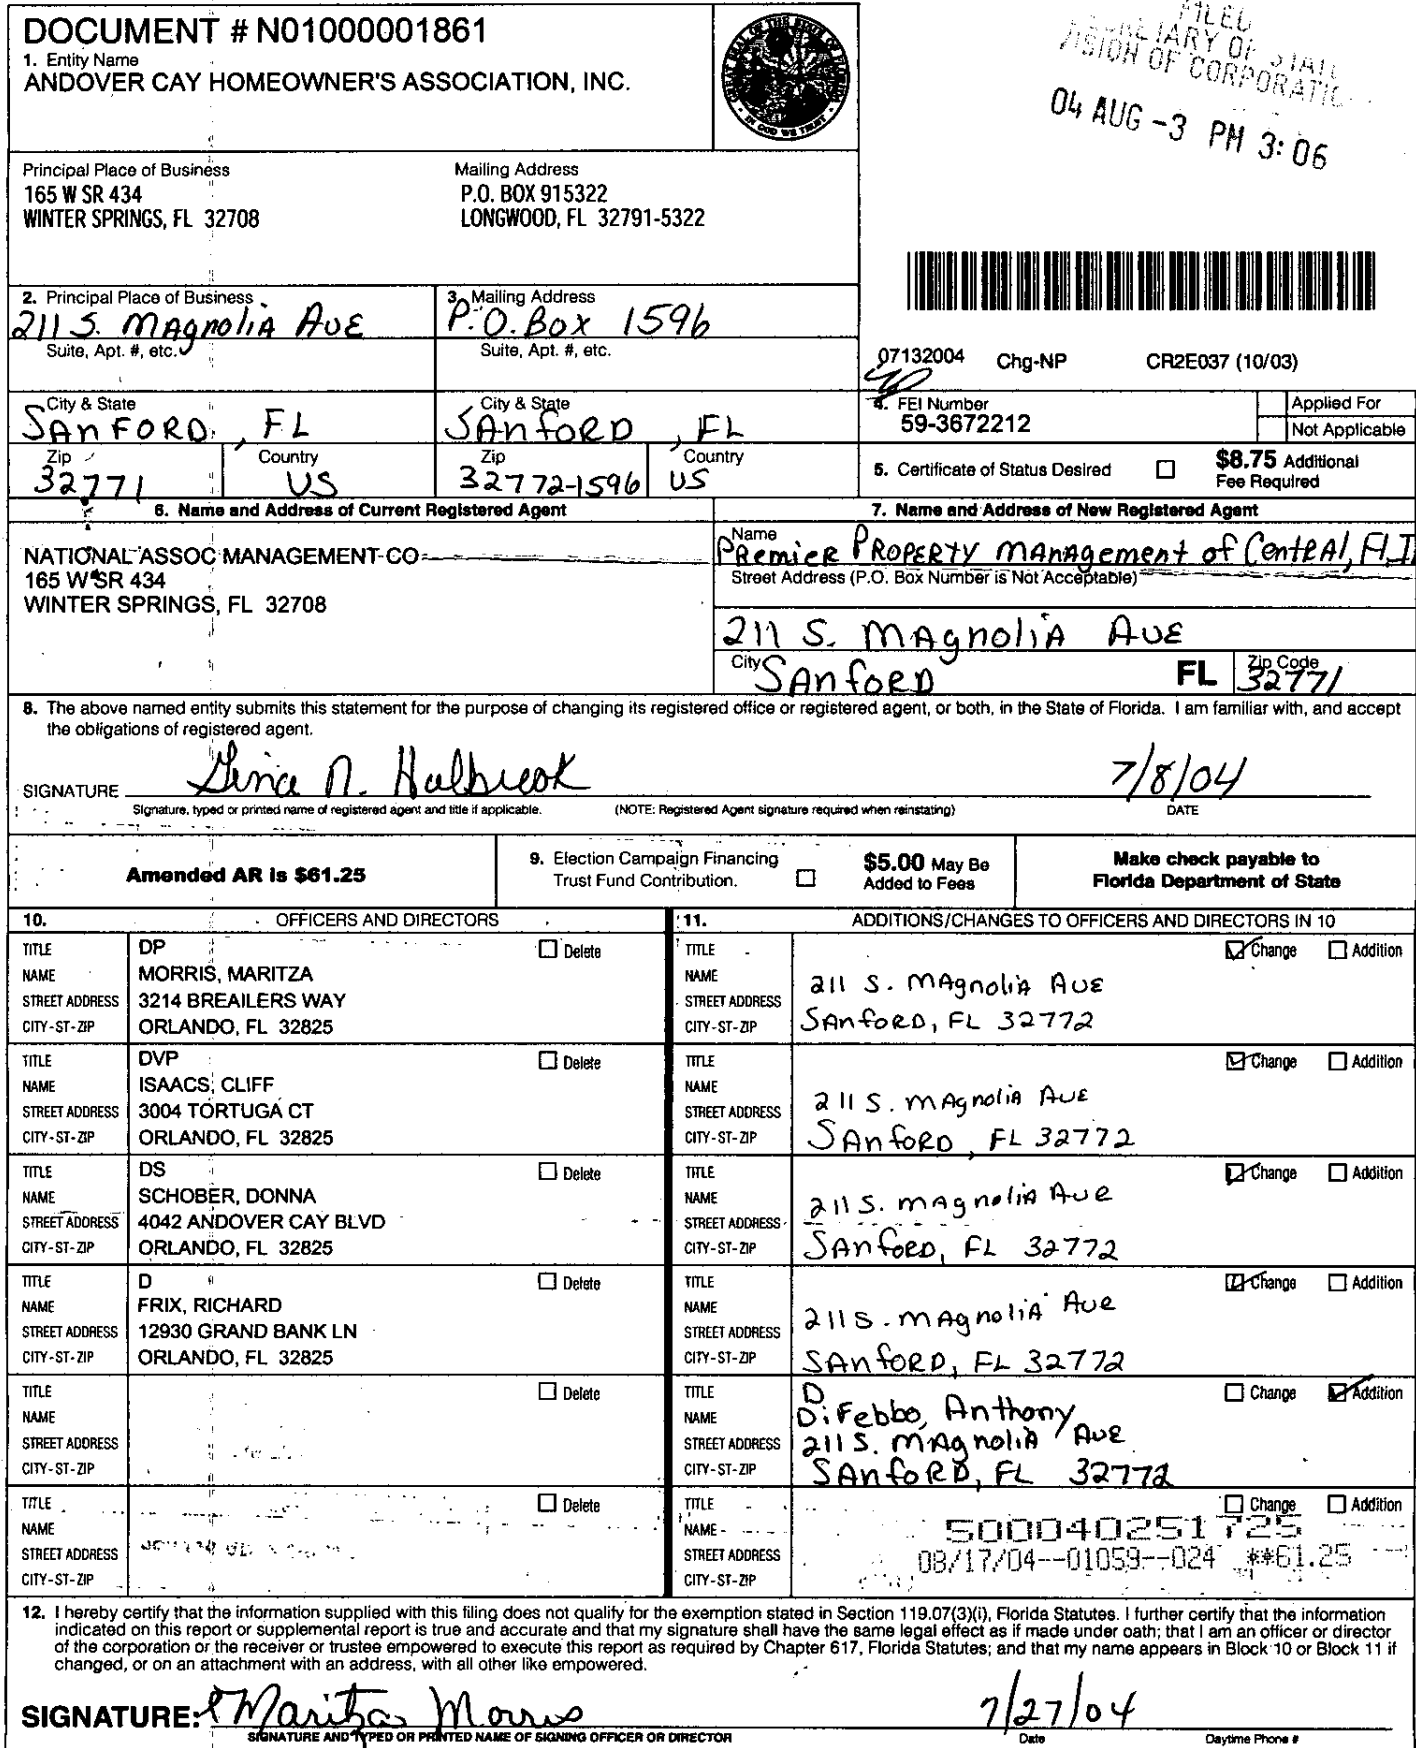 DOCUMENT # N01000001861
1. Entity Name
ANDOVER CAY HOMEOWNER'S ASSOCIATION, INC.
FILED
OF STATE
OF CORPORATIO
04 AUG -3 PM 3:06
IN GOD WE TRUST
Principal Place of Business
165 W SR 434
WINTER SPRINGS, FL 32708
Mailing Address
P.O. BOX 915322
LONGWOOD, FL 32791-5322
2. Principal Place of Business
211 S. Magnolia Ave
Suite, Apt. #, etc.
3. Mailing Address
P.O. Box 1596
Suite, Apt. #, etc.
07132004 Chg-NP CR2E037 (10/03)
City & State
SANFORD, FL
City & State
SANFORD, FL
4. FEI Number
59-3672212
Applied For
Not Applicable
Zip
32771
Country
US
Zip
32772-1596
Country
US
5. Certificate of Status Desired
$8.75 Additional
Fee Required
6. Name and Address of Current Registered Agent
NATIONAL ASSOC MANAGEMENT CO
165 W SR 434
WINTER SPRINGS, FL 32708
7. Name and Address of New Registered Agent
Name
Premier Property Management of Central, Fl, I
Street Address (P.O. Box Number is Not Acceptable)
211 S. Magnolia Ave
City
Sanford
FL
Zip Code
32771
8. The above named entity submits this statement for the purpose of changing its registered office or registered agent, or both, in the State of Florida. I am familiar with, and accept
the obligations of registered agent.
SIGNATURE Gina N. Halbrook 7/8/04
Signature, typed or printed name of registered agent and title if applicable. (NOTE: Registered Agent signature required when reinstating) DATE
Amended AR is $61.25
9. Election Campaign Financing
Trust Fund Contribution.
$5.00 May Be
Added to Fees
Make check payable to
Florida Department of State
10. OFFICERS AND DIRECTORS
11. ADDITIONS/CHANGES TO OFFICERS AND DIRECTORS IN 10
TITLE DP Delete
NAME MORRIS, MARITZA
STREET ADDRESS 3214 BREAILERS WAY
CITY-ST-ZIP ORLANDO, FL 32825
TITLE Change Addition
NAME
STREET ADDRESS 211 S. Magnolia Ave
CITY-ST-ZIP Sanford, FL 32772
TITLE DVP Delete
NAME ISAACS, CLIFF
STREET ADDRESS 3004 TORTUGA CT
CITY-ST-ZIP ORLANDO, FL 32825
TITLE Change Addition
NAME
STREET ADDRESS 211 S. Magnolia Ave
CITY-ST-ZIP Sanford, FL 32772
TITLE DS Delete
NAME SCHOBER, DONNA
STREET ADDRESS 4042 ANDOVER CAY BLVD
CITY-ST-ZIP ORLANDO, FL 32825
TITLE Change Addition
NAME
STREET ADDRESS 211 S. Magnolia Ave
CITY-ST-ZIP Sanford, FL 32772
TITLE D Delete
NAME FRIX, RICHARD
STREET ADDRESS 12930 GRAND BANK LN
CITY-ST-ZIP ORLANDO, FL 32825
TITLE Change Addition
NAME
STREET ADDRESS 211 S. Magnolia Ave
CITY-ST-ZIP Sanford, FL 32772
TITLE Delete
NAME
STREET ADDRESS
CITY-ST-ZIP
TITLE D Change Addition
NAME DiFebbo, Anthony
STREET ADDRESS 211 S. Magnolia Ave
CITY-ST-ZIP Sanford, FL 32772
TITLE Delete
NAME
STREET ADDRESS
CITY-ST-ZIP
TITLE Change Addition
NAME 500040251725
STREET ADDRESS 08/17/04--01059--024 **61.25
CITY-ST-ZIP
12. I hereby certify that the information supplied with this filing does not qualify for the exemption stated in Section 119.07(3)(i), Florida Statutes. I further certify that the information
indicated on this report or supplemental report is true and accurate and that my signature shall have the same legal effect as if made under oath; that I am an officer or director
of the corporation or the receiver or trustee empowered to execute this report as required by Chapter 617, Florida Statutes; and that my name appears in Block 10 or Block 11 if
changed, or on an attachment with an address, with all other like empowered.
SIGNATURE: Maritza Morris 7/27/04
SIGNATURE AND TYPED OR PRINTED NAME OF SIGNING OFFICER OR DIRECTOR Date Daytime Phone #